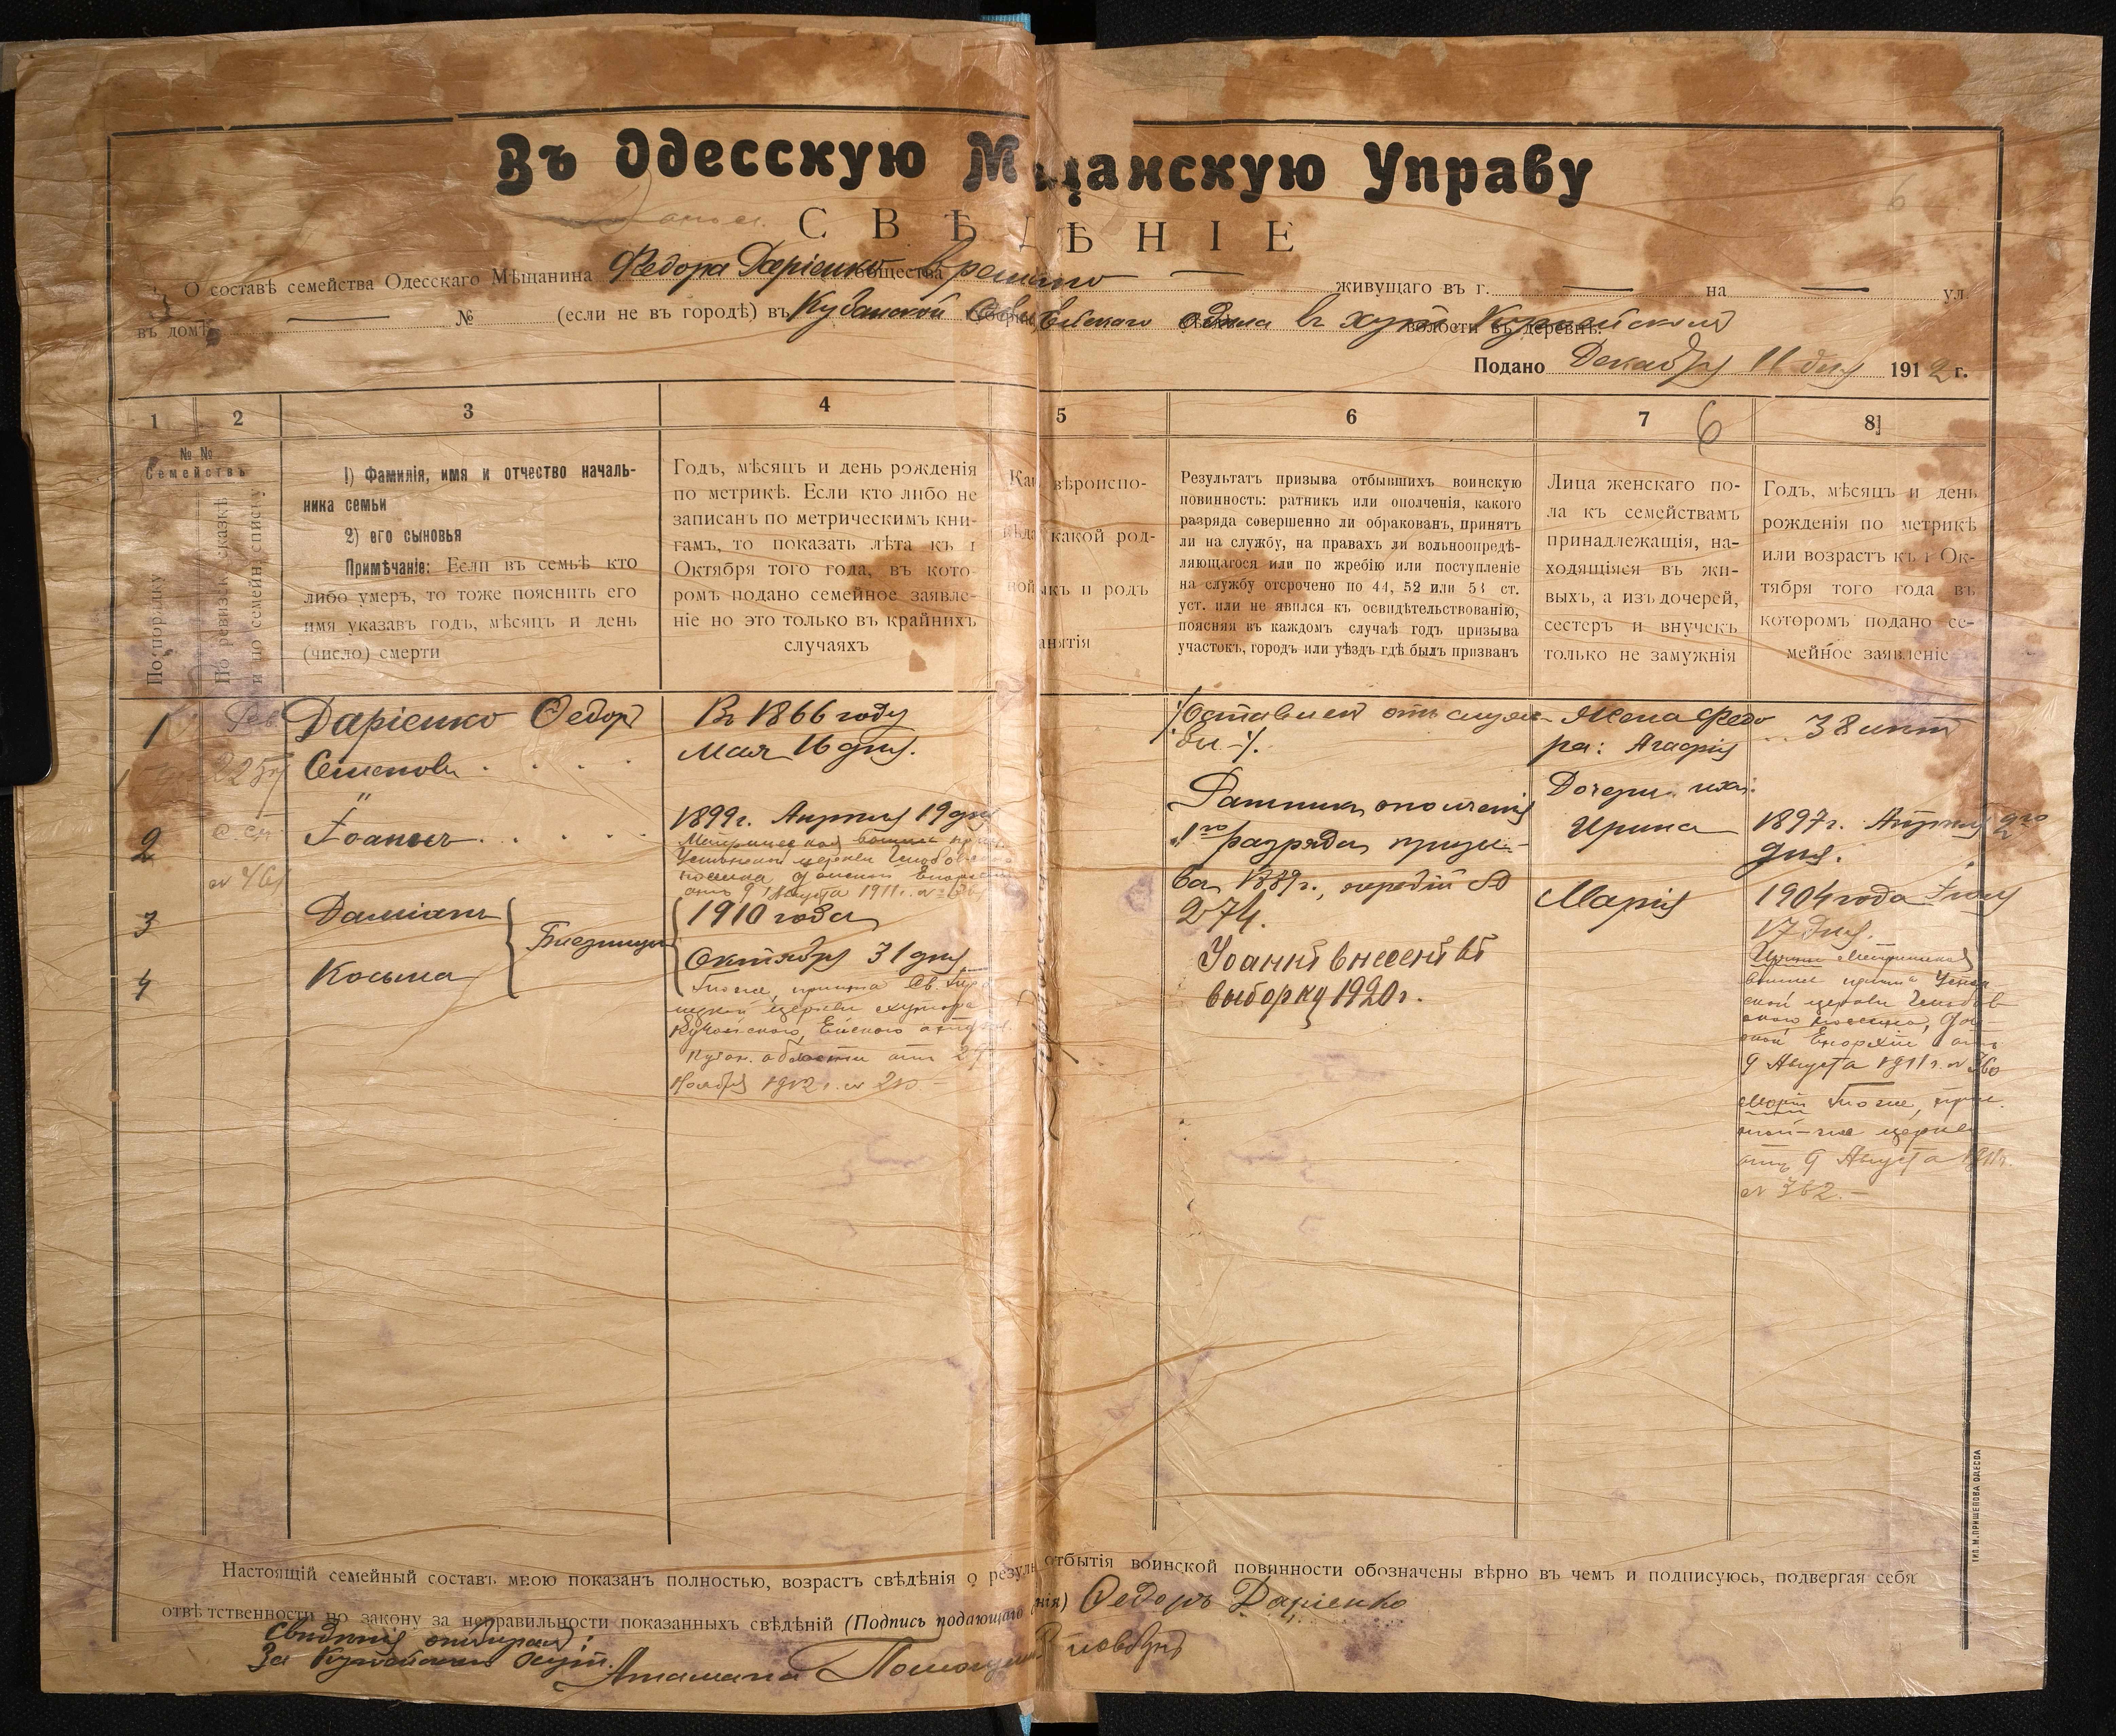 Въ Одесскую М щанскую Управу
СВѢДѢНІЕ
О составѣ семейства Одесскаго Мѣщанина Федора Даріенко общества временно живущаго въ г. — на — ул.
въ домѣ — № (если не въ городѣ) въ Кубанской Ейскаго отдѣла въ хут. волости въ деревнѣ:
Подано Декабря 11 дня 1912 г.
1 2 3 4 5 6 7 6 8
№ №
Семействъ
По порядку
По ревизк. сказкѣ
и по семейн. списку
1) Фамилія, имя и отчество началь-
ника семьи
2) его сыновья
Примѣчаніе: Если въ семьѣ кто
либо умеръ, то тоже пояснить его
имя указавъ годъ, мѣсяцъ и день
(число) смерти
Годъ, мѣсяцъ и день рожденія
по метрикѣ. Если кто либо не
записанъ по метрическимъ кни-
гамъ, то показать лѣта къ 1
Октября того года, въ кото-
ромъ подано семейное заявле-
ніе но это только въ крайнихъ
случаяхъ
Ка вѣроиспо-
какой род-
ной ыкъ и родъ
анятія
Результатъ призыва отбывшихъ воинскую
повинность: ратникъ или ополченія, какого
разряда совершенно ли обракованъ, принятъ
ли на службу, на правахъ ли вольноопредѣ-
ляющагося или по жребію или поступленіе
на службу отсрочено по 44, 52 или 53 ст.
уст. или не явился къ освидѣтельствованію,
поясняя въ каждомъ случаѣ годъ призыва
участокъ, городъ или уѣздъ гдѣ былъ призванъ
Лица женскаго по-
ла къ семействамъ
принадлежащія, на-
ходящіяся въ жи-
выхъ, а изъ дочерей,
сестеръ и внучекъ
только не замужнія
Годъ, мѣсяцъ и день
рожденія по метрикѣ
или возрастъ къ 1 Ок-
тября того года въ
которомъ подано се-
мейное заявленіе
1 Даріенко Ѳедоръ
Семеновъ
Въ 1866 году
Мая 16 дня.
Жена Федо
ра: Агафія
38 лѣтъ
2 Іоаннъ
1899 г. Апрѣля 19 дня
Метрическая
церкви
отъ 9 Августа 1911 г. №
Ратникъ ополченія
1го разряда призы-
ва 1889 г., жребій №
274.
Іоаннъ внесенъ въ
выборку 1920 г.
Дочери ихъ:
Ирина
1897 г. Апрѣля
дня.
3 Даміанъ
4 Косьма
Близнецы
1910 года
Октября 31 дня
тоже, причта Св.
церкви хутора
Ейского отдѣла
Кубан. области отъ
Ноября 1912 г. № 210.-
Марія
1904 года Іюля
17 дня.
Ирины Метрическая
церкви
Епархіи отъ
9 Августа 1911 г. № 360
Маріи тоже,
той-же церкви
отъ 9 Августа 1911 г.
№ 362.-
Настоящій семейный составъ мною показанъ полностью, возрастъ свѣдѣнія о резуль отбытія воинской повинности обозначены вѣрно въ чемъ и подписуюсь, подвергая себя
отвѣтственности по закону за неправильности показанныхъ свѣдѣній (Подпись подающаго нія) Ѳедоръ Даріенко
Свидѣнія отбиралъ:
За хут. Атамана Помощникъ
ТИП. М. ПРИЩЕПОВА ОДЕССА